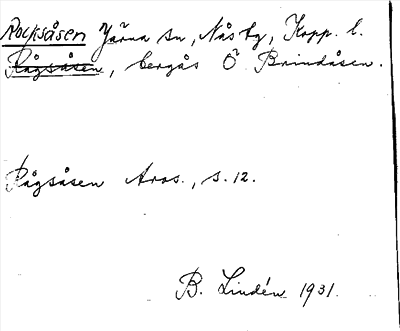 Rocksåsen Järna sn, Nås tg, Kopp. l.
Rågsåsen, bergås Ö Brindåsen.
Rågsåsen Aros., s. 12.
B. Lindén 1931.